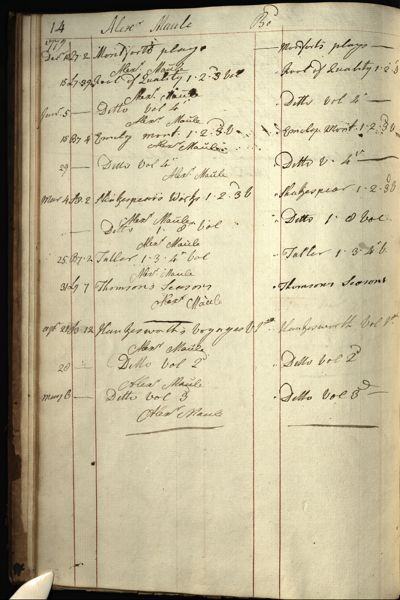 14 Alexr Maule Bd
1779
Dec Montforts plays Montforts plays
Alexr Maule
15 Fool of Quality 1.2.3d vol Fool of Quality 1.2.3
Alexr Maule
5 Ditto vol 4 Ditto vol 4
Alexr Maule
15 1.2.3d v 1.2.3d v
Alexr Maule
29 Ditto vol 4 Ditto v. 4
Alexr Maule
Mar 4 Shakespears Works 1.2.3d v Shakespear 1.2.3d v
Alexr Maule
Ditto 1. 8 vol Ditto 1. 8 vol
Alexr Maule
25 B7.2 Tatler 1.3.4 vol Tatler 1.3.4 v.
Alexr Maule
31 7 Thomsons Seasons Thomsons Seasons
Alexr Maule
12 Hawkesworth's voyages V 1st Hawkesworth Vol 1st
Alexr Maule
28 Ditto vol 2d Ditto vol 2d
Alexr Maule
Ditto vol 3 Ditto vol 3d
Alexr Maule